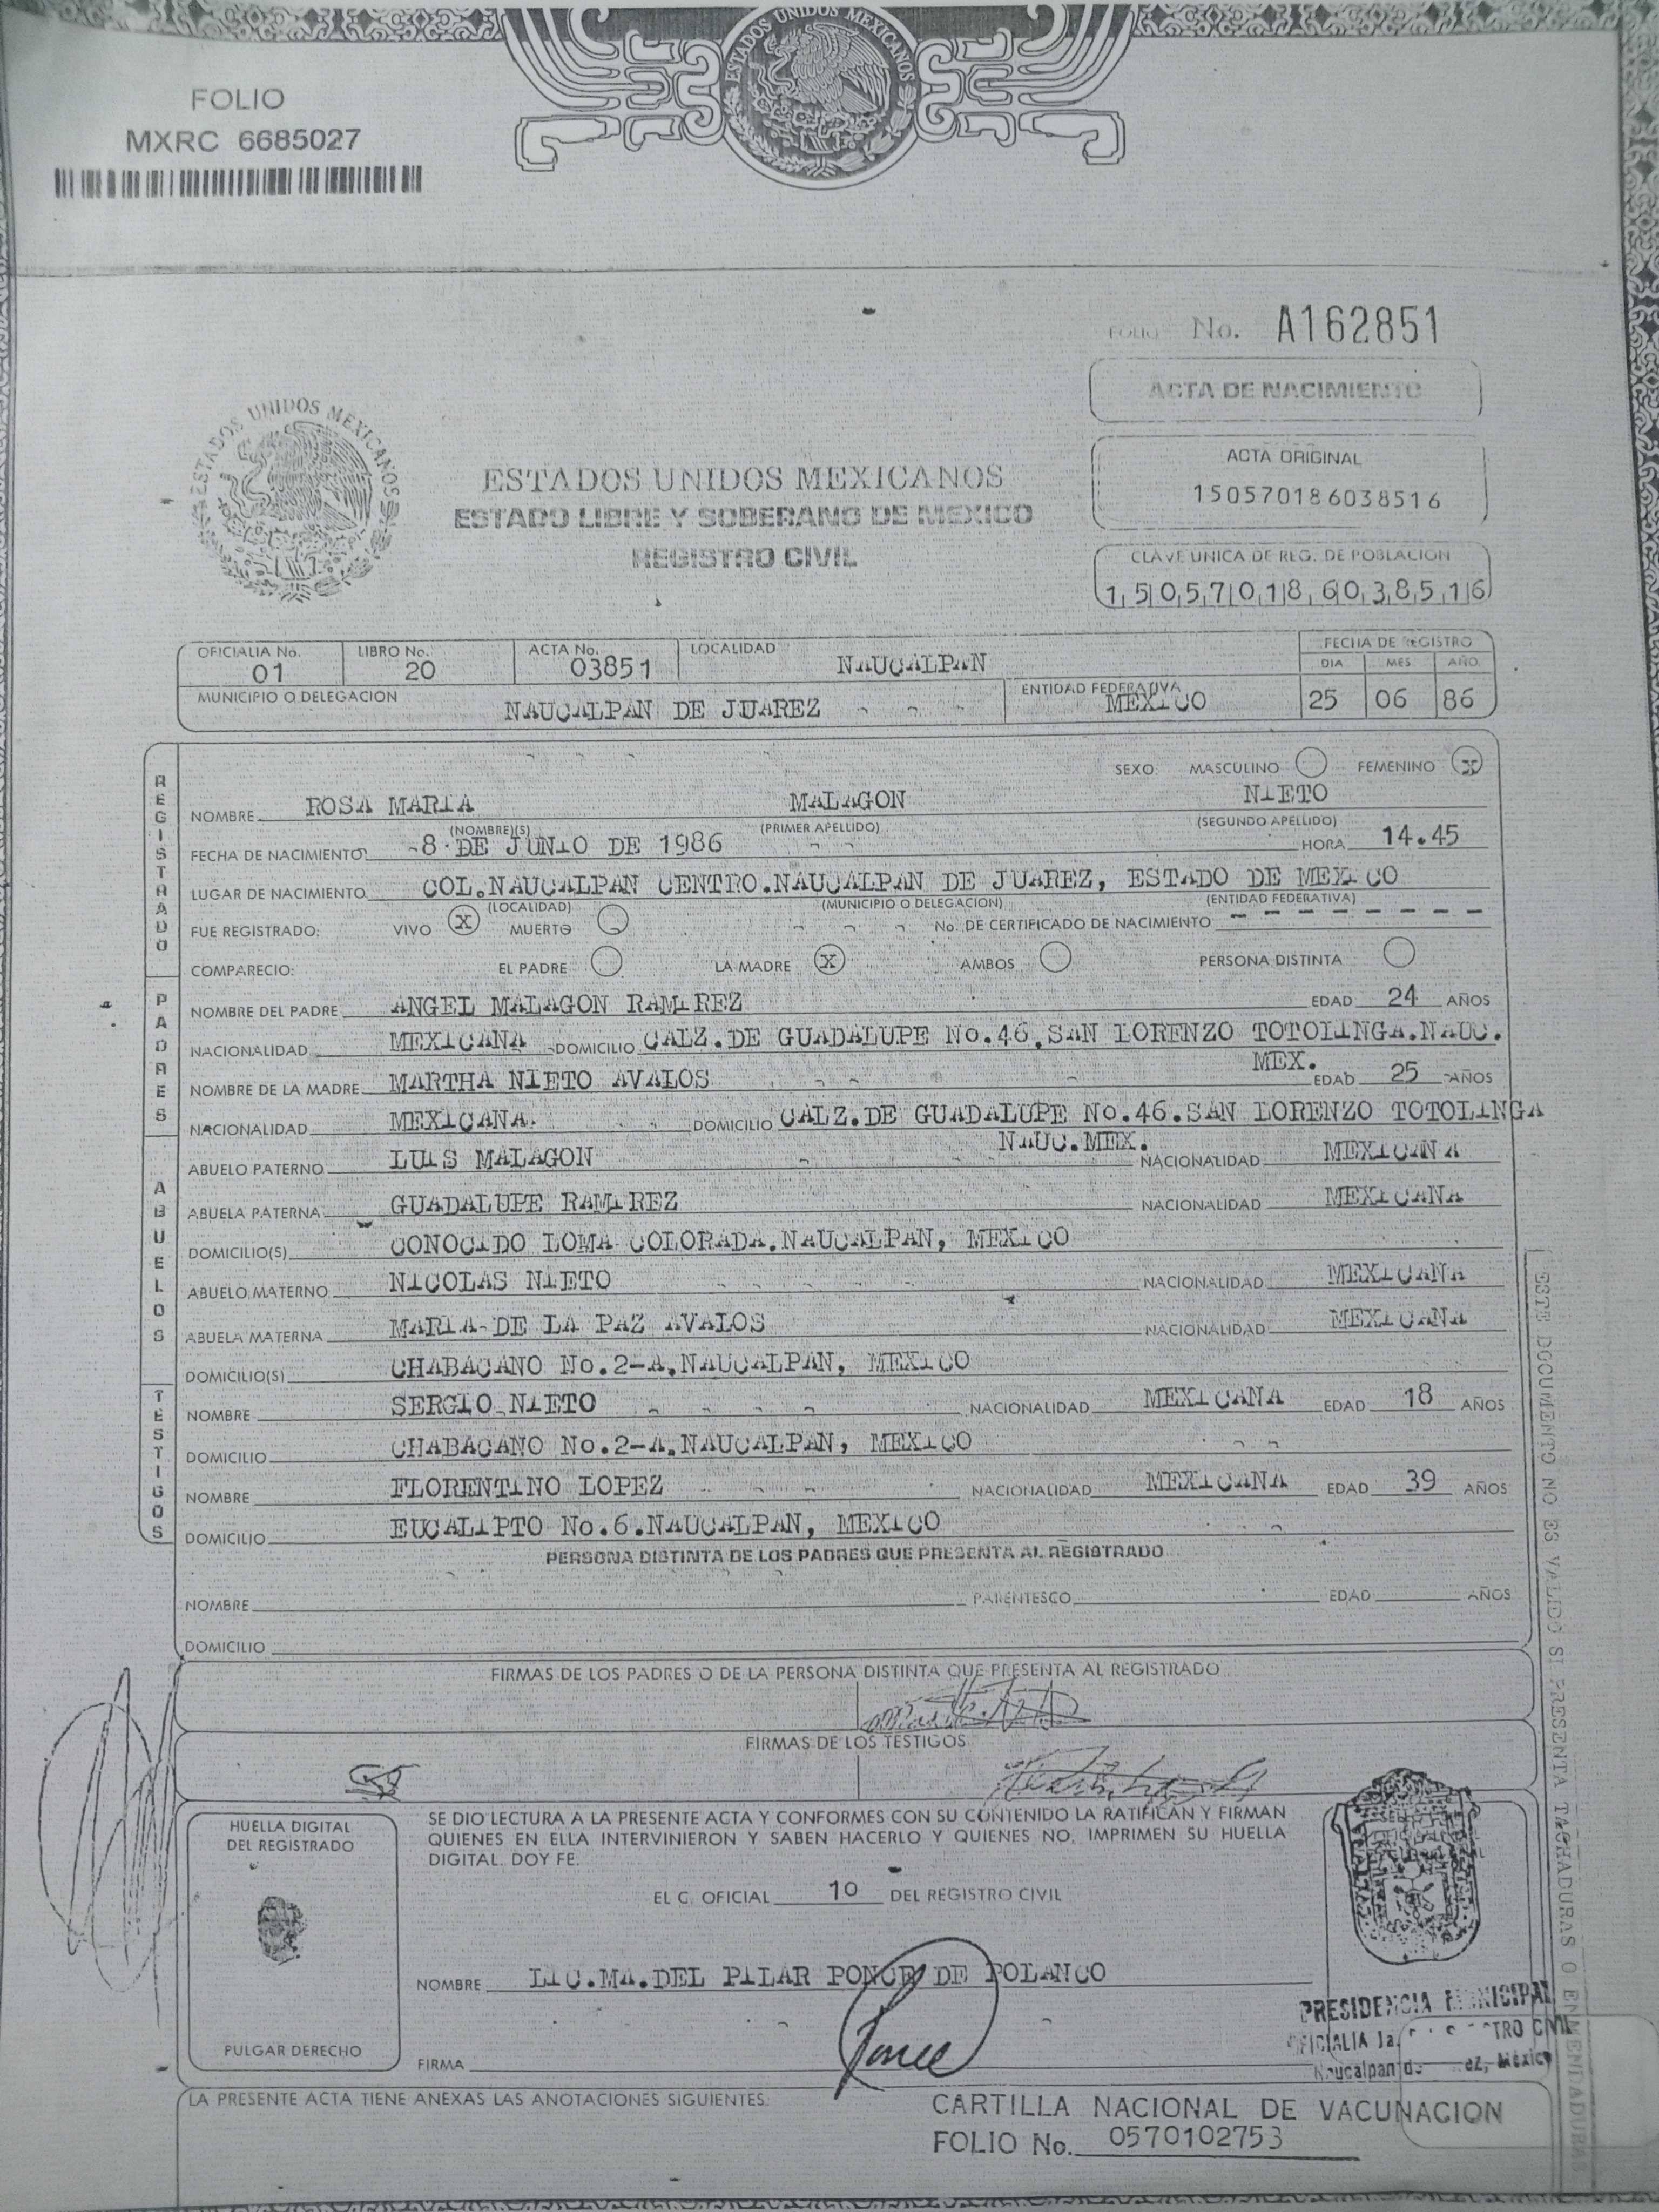 ESTADOS UNIDOS MEXICANOS
FOLIO
MXRC 6685027
FOLIO No. A162851
ACTA DE NACIMIENTO
ESTADOS UNIDOS MEXICANOS
ACTA ORIGINAL
150570186038516
ESTADOS UNIDOS MEXICANOS
ESTADO LIBRE Y SOBERANO DE MEXICO
REGISTRO CIVIL
CLAVE UNICA DE REG. DE POBLACION
150570186038516
OFICIALIA No. 01 LIBRO No. 20 ACTA No. 03851 LOCALIDAD NAUCALPAN
FECHA DE REGISTRO
DIA MES AÑO
MUNICIPIO O DELEGACION NAUCALPAN DE JUAREZ ENTIDAD FEDERATIVA MEXICO 25 06 86
REGISTRADO
SEXO: MASCULINO FEMENINO X
NOMBRE ROSA MARIA MALAGON NIETO
(NOMBRE(S) (PRIMER APELLIDO) (SEGUNDO APELLIDO)
FECHA DE NACIMIENTO 8 DE JUNIO DE 1986 HORA 14.45
LUGAR DE NACIMIENTO COL.NAUCALPAN CENTRO.NAUCALPAN DE JUAREZ, ESTADO DE MEXICO
(LOCALIDAD) (MUNICIPIO O DELEGACION) (ENTIDAD FEDERATIVA)
FUE REGISTRADO: VIVO X MUERTO No. DE CERTIFICADO DE NACIMIENTO - - - - - - - -
COMPARECIO: EL PADRE LA MADRE X AMBOS PERSONA DISTINTA
PADRES
NOMBRE DEL PADRE ANGEL MALAGON RAMIREZ EDAD 24 AÑOS
NACIONALIDAD MEXICANA DOMICILIO CALZ.DE GUADALUPE No.46.SAN LORENZO TOTOLINGA.NAUC.
MEX.
NOMBRE DE LA MADRE MARTHA NIETO AVALOS EDAD 25 AÑOS
NACIONALIDAD MEXICANA DOMICILIO CALZ.DE GUADALUPE No.46.SAN LORENZO TOTOLINGA
NAUC.MEX.
ABUELOS
ABUELO PATERNO LUIS MALAGON NACIONALIDAD MEXICANA
ABUELA PATERNA GUADALUPE RAMIREZ NACIONALIDAD MEXICANA
DOMICILIO(S) CONOCIDO LOMA COLORADA.NAUCALPAN, MEXICO
ABUELO MATERNO NICOLAS NIETO NACIONALIDAD MEXICANA
ABUELA MATERNA MARIA DE LA PAZ AVALOS NACIONALIDAD MEXICANA
DOMICILIO(S) CHABACANO No.2-A.NAUCALPAN, MEXICO
TESTIGOS
NOMBRE SERGIO NIETO NACIONALIDAD MEXICANA EDAD 18 AÑOS
DOMICILIO CHABACANO No.2-A.NAUCALPAN, MEXICO
NOMBRE FLORENTINO LOPEZ NACIONALIDAD MEXICANA EDAD 39 AÑOS
DOMICILIO EUCALIPTO No.6.NAUCALPAN, MEXICO
PERSONA DISTINTA DE LOS PADRES QUE PRESENTA AL REGISTRADO
NOMBRE PARENTESCO EDAD AÑOS
DOMICILIO
FIRMAS DE LOS PADRES O DE LA PERSONA DISTINTA QUE PRESENTA AL REGISTRADO
FIRMAS DE LOS TESTIGOS
HUELLA DIGITAL
DEL REGISTRADO
PULGAR DERECHO
SE DIO LECTURA A LA PRESENTE ACTA Y CONFORMES CON SU CONTENIDO LA RATIFICAN Y FIRMAN
QUIENES EN ELLA INTERVINIERON Y SABEN HACERLO Y QUIENES NO, IMPRIMEN SU HUELLA
DIGITAL. DOY FE.
EL C. OFICIAL 1o DEL REGISTRO CIVIL
NOMBRE LIC.MA.DEL PILAR PONCE DE POLANCO
FIRMA Ponce
PRESIDENCIA MUNICIPAL
OFICIALIA 1a. CIVIL
Naucalpan de México
LA PRESENTE ACTA TIENE ANEXAS LAS ANOTACIONES SIGUIENTES:
CARTILLA NACIONAL DE VACUNACION
FOLIO No. 0570102753
ESTE DOCUMENTO NO ES VALIDO SI PRESENTA TACHADURAS O ENMENDADURAS